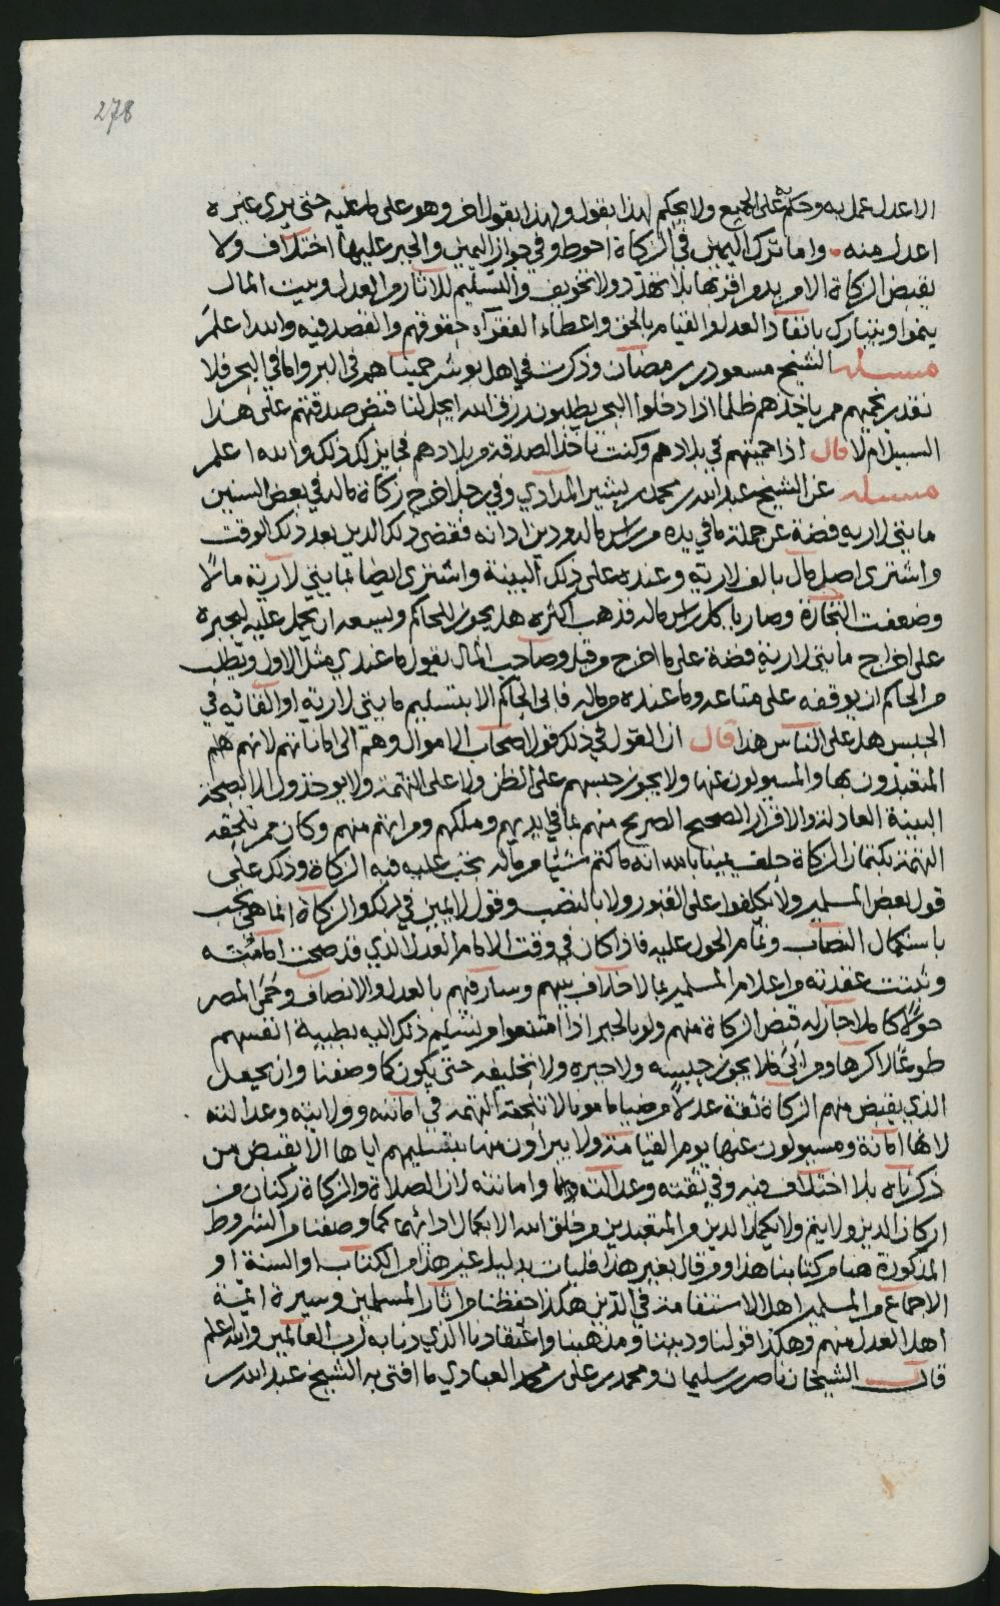 278
الاعدل عمل به وحكم على الجميع ولا يحكم لهذا بقول ولهذا بقول اخر وهو على ما عليه حتى يرى غيره
اعدل منه واما ترك اليمين في الزكاة احوط وفي جواز اليمين والجبر عليها اختلاف ولا
يقبض الزكاة الا من يد من اقر بها بلا تهدد ولا تخويف والتسليم للاثار والعدل وبيت المال
ينموا ويتبارك بانفاذ العدل والقيام بالحق واعطاء الفقراء حقوقهم والقصد فيه والله اعلم
مسئله الشيخ مسعود بن رمضان وذكرت في اهل بوشر حميناهم في البر واما في البحر فلا
نقدر نحميهم ممن ياخذهم ظلما اذا دخلوا البحر يطلبون رزق الله ايجل لنا قبض صدقتهم على هذا
السبيل ام لا قال اذا حميتهم في بلادهم وكنت تاخذ الصدقة من بلادهم فجايز لك ذلك والله اعلم
مسئله عن الشيخ عبدالله بن محمد بن بشير المدادي وفي رجل اخرج زكاة ماله في بعض السنين
مايتي لارية فضة عن جملة ما في يده من راس ماله ودين ادانه فقضى ذلك الدين بعد ذلك الوقت
واشترى اصل مال بالف لارية وعنده على ذلك البينة واشترى ايضا بمايتي لارية مالا
وضعفت التجارة وصار ياكل راس ماله فذهب اكثره هل يجوز للحاكم ويسعه ان يحمل عليه ليجبره
على اخراج مايتي لارية فضة على ما اخرج من قبل وصاحب المال يقول ما عندي مثل الاول ويطلب
من الحاكم ان يوقفه على متاعه وما عنده من ماله فابى الحاكم الا بتسليم مايتي لارية او القائه في
الحبس هل على الناس هذا قال ان القول في ذلك قول اصحاب الاموال وهم الى اماناتهم لانهم هم
المتعبدون بها والمسيولون عنها ولا يجوز حبسهم على الظن ولا على التهمة ولا يوخذون الا بالصحة
البينة العادلة والاقرار الصحيح الصريح منهم بما في يديهم وملكهم ومن اتهم منهم وكان ممن تلحقه
التهمة بكتمان الزكاة حلف يمينا بالله انه ما كتم شيئا من ماله تجب عليه فيه الزكاة وذلك على
قول بعض المسلمين ولا يحلفوا على القبور ولا بالنصب وقول لا يمين في ذلك والزكاة انما هي تجب
باستكمال النصاب وتمام الحول عليه فاذا كان في وقت الامام العدل الذي قد صحت امامته
وثبتت عقدته من اعلام المسلمين بما لا خلاف بينهم وسار فيهم بالعدل والانصاف وحمى المصر
حولا كاملا جاز له قبض الزكاة منهم ولو بالجبر اذا امتنعوا من تسليم ذلك اليه بطيبة انفسهم
طوعا او كرها ومن ابى فلا يجوز حبسه ولا جبره ولا تخليفه حتى يكون كما وصفنا وان يجعل
الذي يقبض منهم الزكاة ثقة عدلا مرضيا مامونا لا تلحقه التهمه في امانته وولايته وعدالته
لانها امانة ومسيولون عنها يوم القيامة ولا يبراون منها بتسليمهم اياها الا بقبض من
ذكرناه بلا اختلاف فيه وفي ثقته وعدالته وامانته لان الصلاة والزكاة ركنان من
اركان الدين ولا يتم ولا يكمل الدين من المتعبدين من خلق الله الا بكمال ادائهما كما وصفنا من الشروط
المذكورة هنا من كتابنا هذا ومن قال بغير هذا فليات بدليل غير هذا من الكتاب او السنة او
الاجماع من المسلمين اهل الاستقامة في الدين هكذا حفظنا من اثار المسلمين وسيرة ائمة
اهل العدل منهم وهكذا قولنا وديننا ومذهبنا واعتقادنا الذي دنا به لرب العالمين والله اعلم
قال الشيخان ناصر بن سليمان ومحمد بن علي بن محمد العبادي ما افتى به الشيخ عبدالله بن